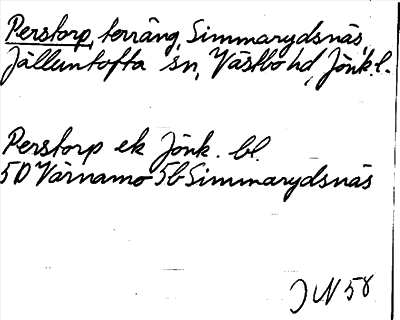 Perstorp, terräng, Simmarydsnäs,
Jälluntofta sn, Västbo hd, Jönk. l.
Perstorp ek Jönk. bl.
5D Värnamo 5b Simmarydsnäs
J N 58